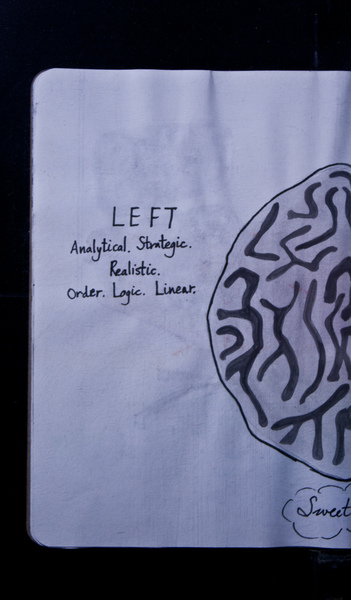 LEFT
Analytical. Strategic.
Realistic.
Order. Logic. Linear.
Sweet